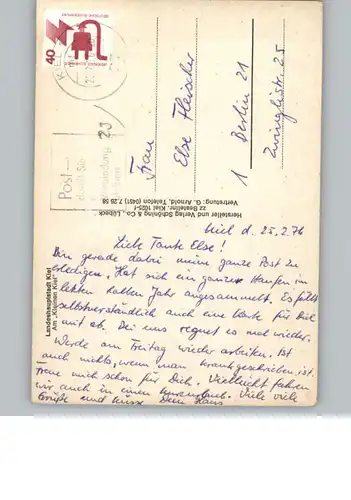 40
DEUTSCHE BUNDESPOST
KIEL
Post-
Frau
Else Fleischer
1 Berlin 21
Zwinglistr. 25
Hersteller und Verlag Schöning & Co., Lübeck
zz Bestellnr. Kiel 1025-f
Vertretung: G. Arnold, Telefon (0451) 7 26 58
Landeshauptstadt Kiel
Am "Kleinen Kiel"
Kiel d. 25.2.76
Liebe Tante Else!
Bin gerade dabei meine ganze Post zu
erledigen. Hat sich ein ganzer Haufen im
letzten halben Jahr angesammelt. Es fällt
selbstverständlich auch eine Karte für Dich
mit ab. Bei uns regnet es mal wieder.
Werde am Freitag wieder arbeiten. Ist
auch nichts, wenn man krankgeschrieben ist.
Freue mich schon für Dich. Vielleicht fahren
wir auch in einen Kurzurlaub. Viele viele
Grüße und Küsse Dein Hans